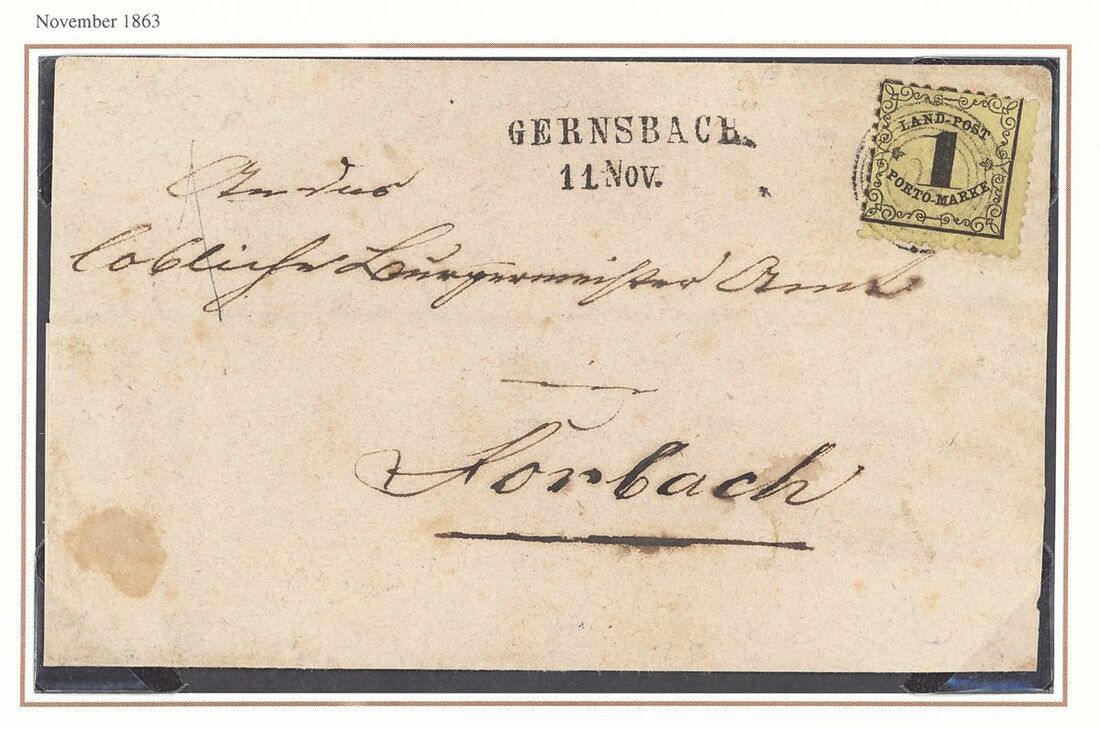 November 1863
GERNSBACH.
11 Nov.
LAND-POST
1
PORTO-MARKE
An das
lobliche Burgermeister Amt
Forbach